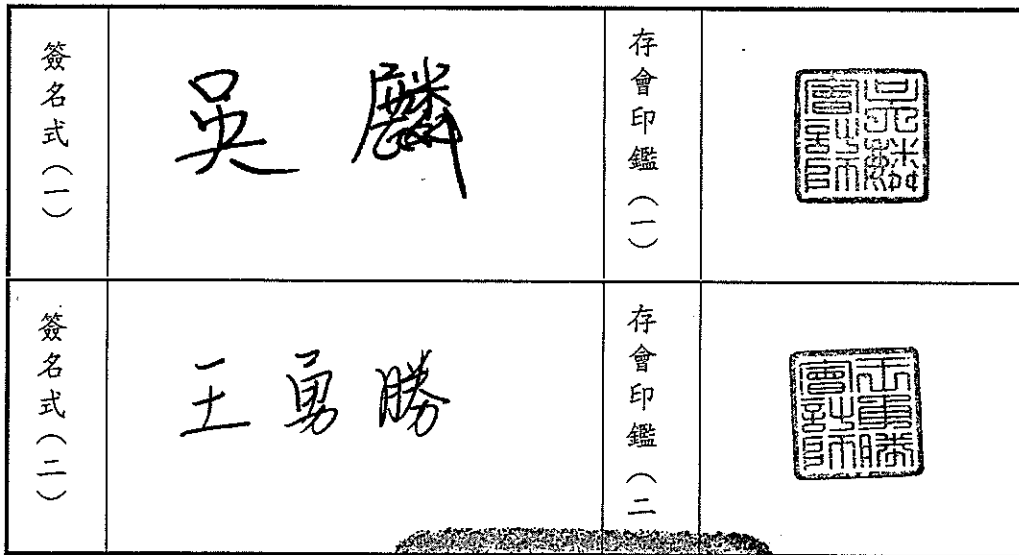 簽名式（一）
吳 麟
存會印鑑（一）
吳麟會計師
簽名式（二）
王勇勝
存會印鑑（二
王勇勝會計師